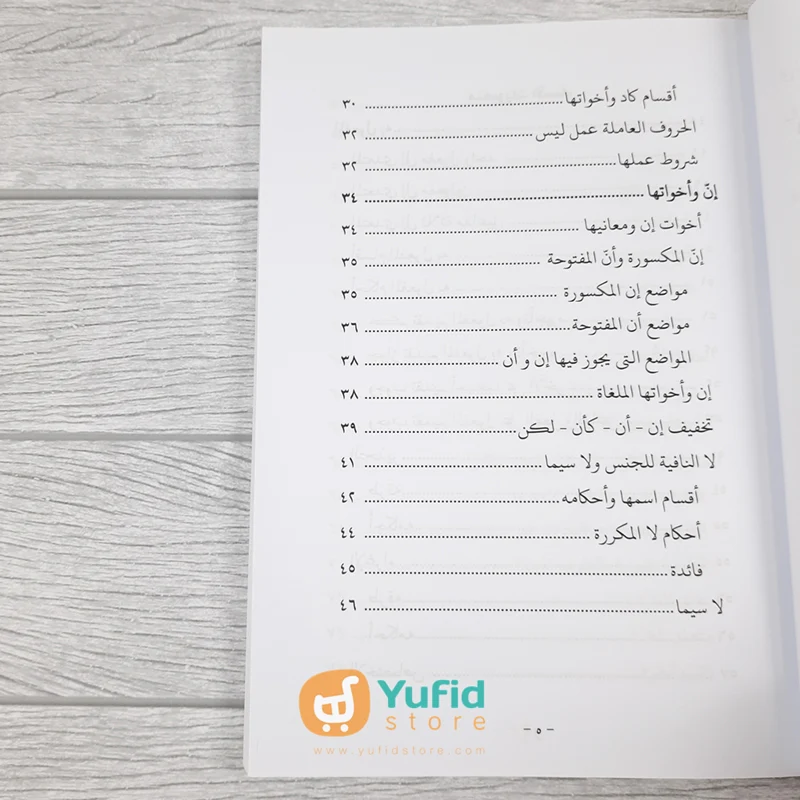 أقسام كاد وأخواتها ........ ٣٠
الحروف العاملة عمل ليس ........ ٣٢
شروط عملها ........ ٣٢
إنّ وأخواتها ........ ٣٤
أخوات إن ومعانيها ........ ٣٤
إنّ المكسورة وأنّ المفتوحة ........ ٣٥
مواضع إن المكسورة ........ ٣٥
مواضع أن المفتوحة ........ ٣٦
المواضع التى يجوز فيها إن و أن ........ ٣٨
إن وأخواتها الملغاة ........ ٣٨
تخفيف إن - أن - كأن - لكن ........ ٣٩
لا النافية للجنس ولا سيما ........ ٤١
أقسام اسمها وأحكامه ........ ٤٢
أحكام لا المكررة ........ ٤٤
فائدة ........ ٤٥
لا سيما ........ ٤٦
Yufid
store
www.yufidstore.com
- ٥ -